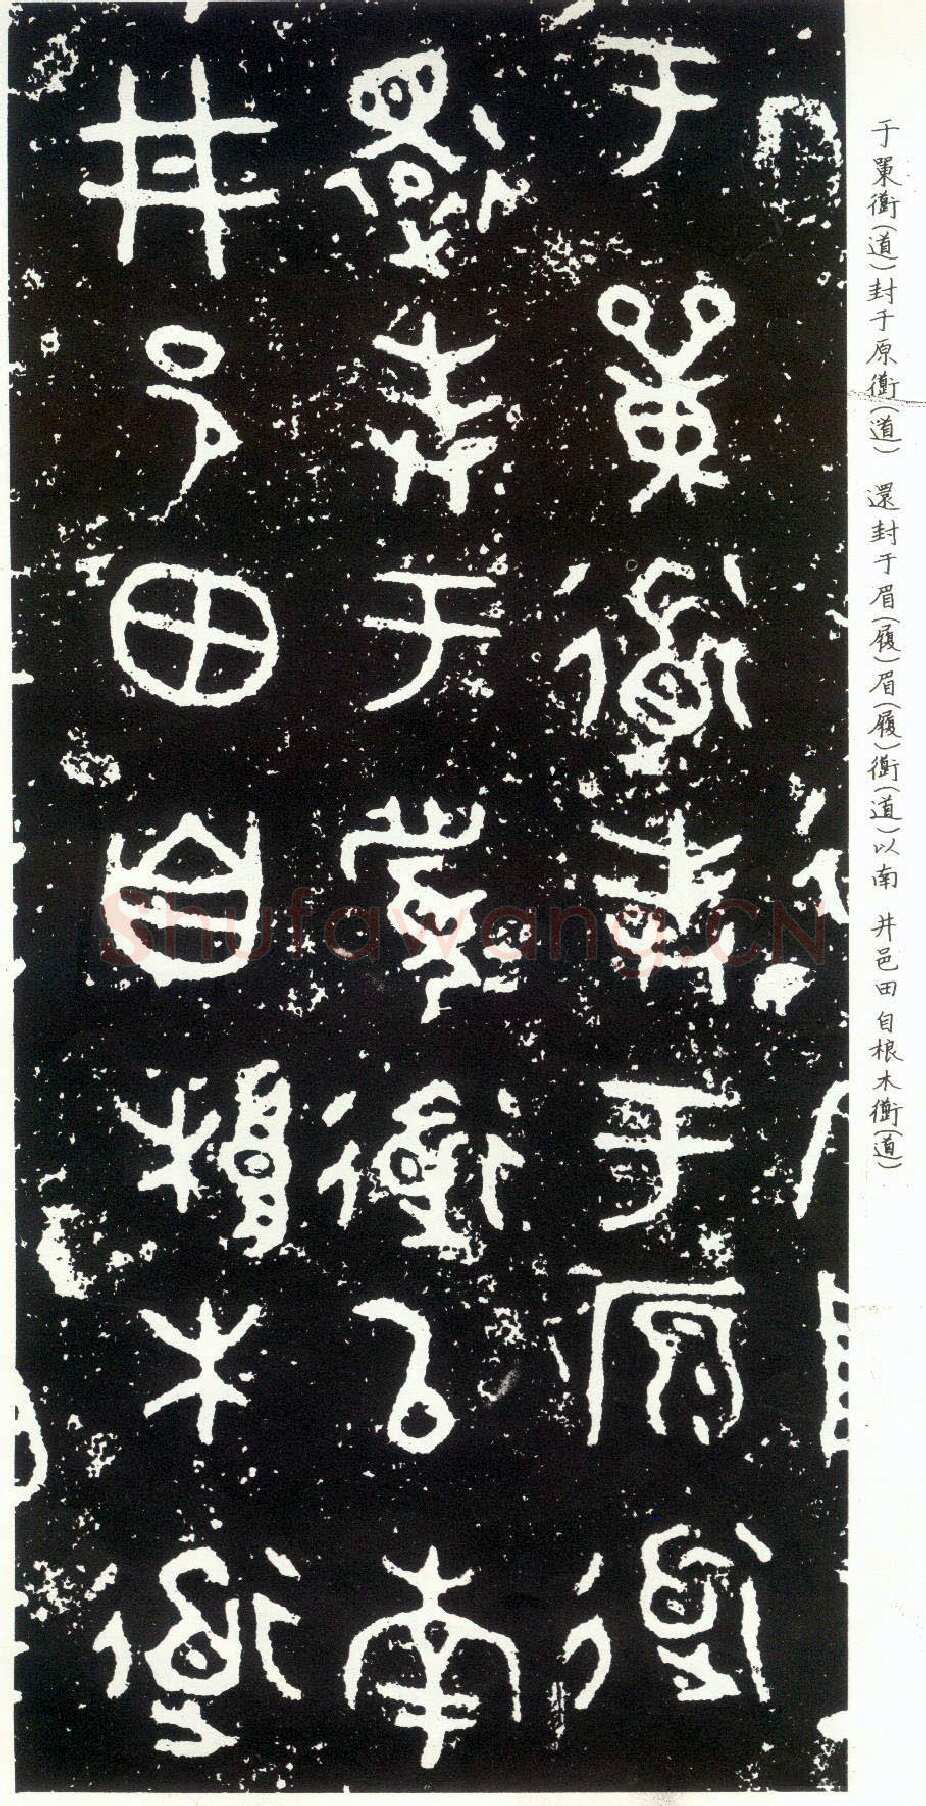 于單衜(道)封于原衜(道) 還封于眉(履)眉(履)衜(道)以南 井邑田自根木衜(道)
于單衜封于原衜
還封于眉衜以南
井邑田自根木衜
Shufawang.CN